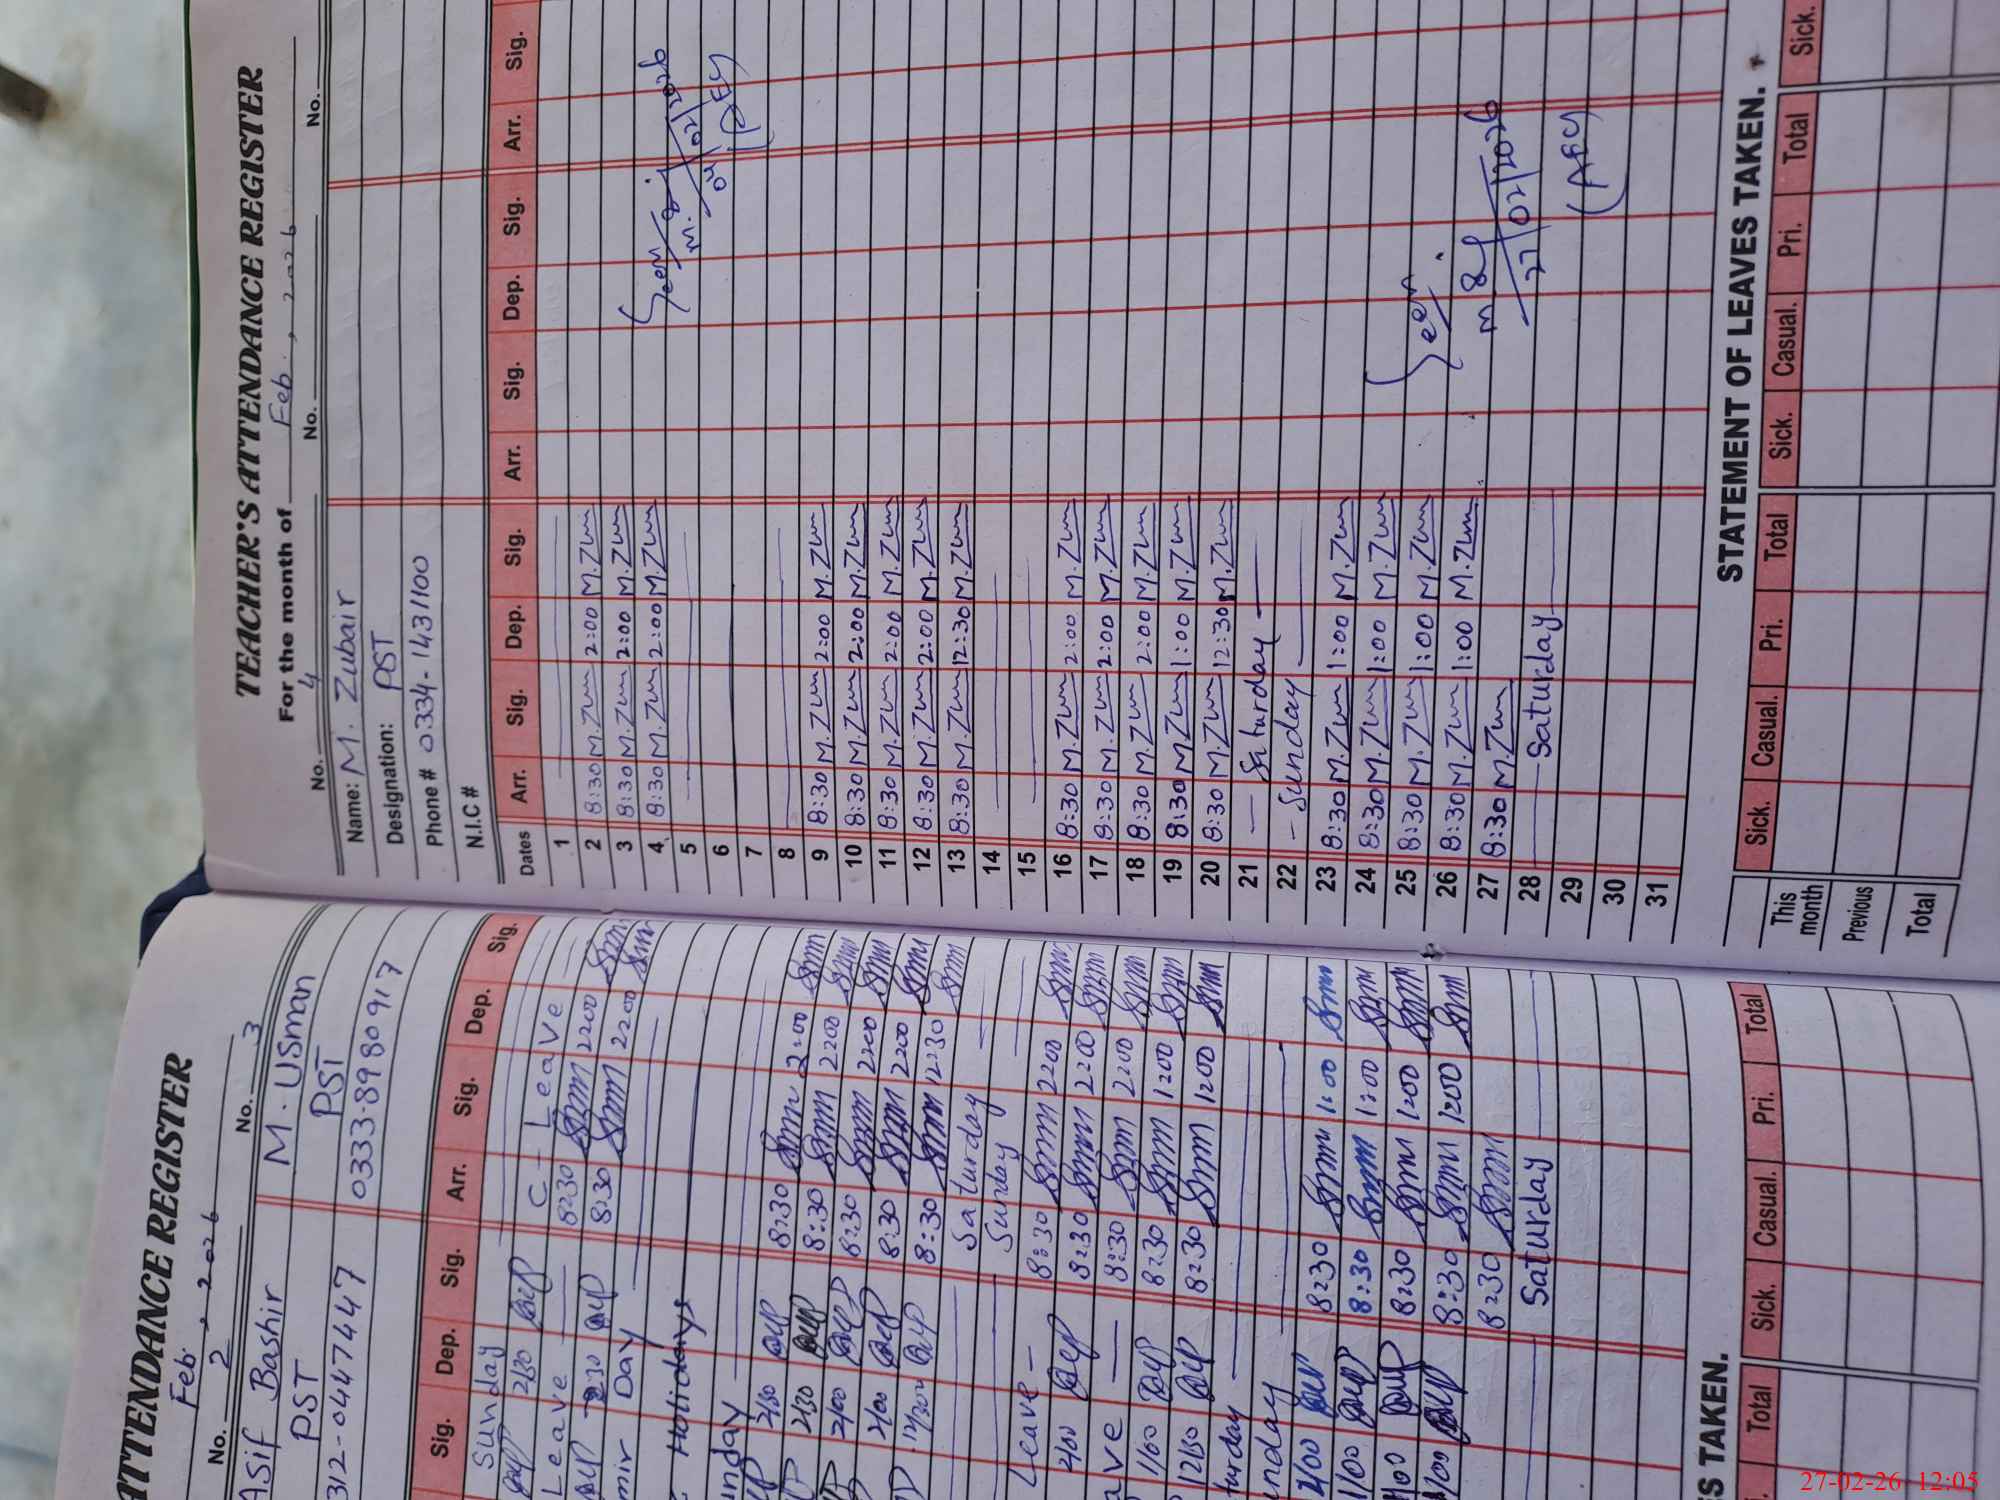 ATTENDANCE REGISTER
Feb. , 2026
No. 2 No. 3
Asif Bashir M. Usman
PST PST
312-0447447 0333-8980917
Sig. Dep. Sig. Arr. Sig. Dep. Sig.
Sunday
2:30 C - Leave
Leave 8:30 2:00
2:30 8:30 2:00
mir Day
Holidays
unday
2:00 8:30 2:00
2:30 8:30 2:00
2:00 8:30 2:00
2:00 8:30 2:00
12:30 8:30 12:30
Saturday
Sunday
Leave - 8:30 2:00
2:00 8:30 2:00
ave 8:30 2:00
1:00 8:30 1:00
12:30 8:30 1:00
turday
nday
1:00 8:30 1:00
1:00 8:30 1:00
1:00 8:30 1:00
1:00 8:30 1:00
8:30
Saturday
S TAKEN.
Total Sick. Casual. Pri. Total
TEACHER'S ATTENDANCE REGISTER
For the month of Feb. , 2026
No. 4 No. No.
Name: M. Zubair
Designation: PST
Phone # 0334-1431100
N.I.C #
Dates Arr. Sig. Dep. Sig. Arr. Sig. Dep. Sig. Arr. Sig.
1
2 8:30 M.Zum 2:00 M.Zum
3 8:30 M.Zum 2:00 M.Zum
4 8:30 M.Zum 2:00 M.Zum Seen
5 04/02/2026
6
7
8
9 8:30 M.Zum 2:00 M.Zum
10 8:30 M.Zum 2:00 M.Zum
11 8:30 M.Zum 2:00 M.Zum
12 8:30 M.Zum 2:00 M.Zum
13 8:30 M.Zum 12:30 M.Zum
14
15
16 8:30 M.Zum 2:00 M.Zum
17 8:30 M.Zum 2:00 M.Zum
18 8:30 M.Zum 2:00 M.Zum
19 8:30 M.Zum 1:00 M.Zum
20 8:30 M.Zum 12:30 M.Zum
21 - Saturday -
22 - Sunday
23 8:30 M.Zum 1:00 M.Zum
24 8:30 M.Zum 1:00 M.Zum
25 8:30 M.Zum 1:00 M.Zum Seen
26 8:30 M.Zum 1:00 M.Zum
27 8:30 M.Zum
28 Saturday 27/02/2026
29 (AEY)
30
31
STATEMENT OF LEAVES TAKEN.
Sick. Casual. Pri. Total Sick. Casual. Pri. Total Sick.
This month
Previous
Total
27-02-26 12:05